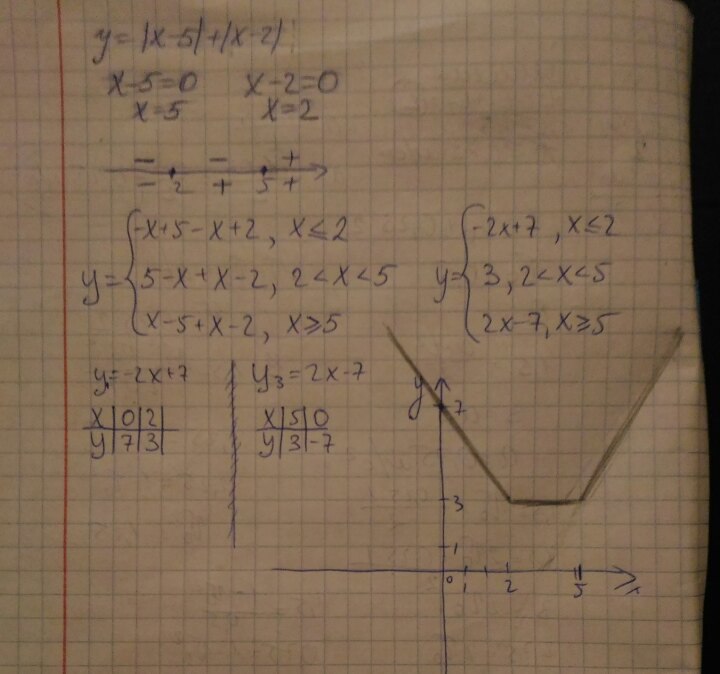 y = |x-5|+|x-2|
x-5=0 x-2=0
x=5 x=2
− − +
− 2 + 5 +
y= { -x+5-x+2, x≤2
5-x+x-2, 2<x<5
x-5+x-2, x≥5
y= { -2x+7, x≤2
3, 2<x<5
2x-7, x≥5
y₁=-2x+7
x|0|2|
y|7|3|
y₃=2x-7
x|5|0
y|3|-7
y
7
3
1
0 1 2 5 x